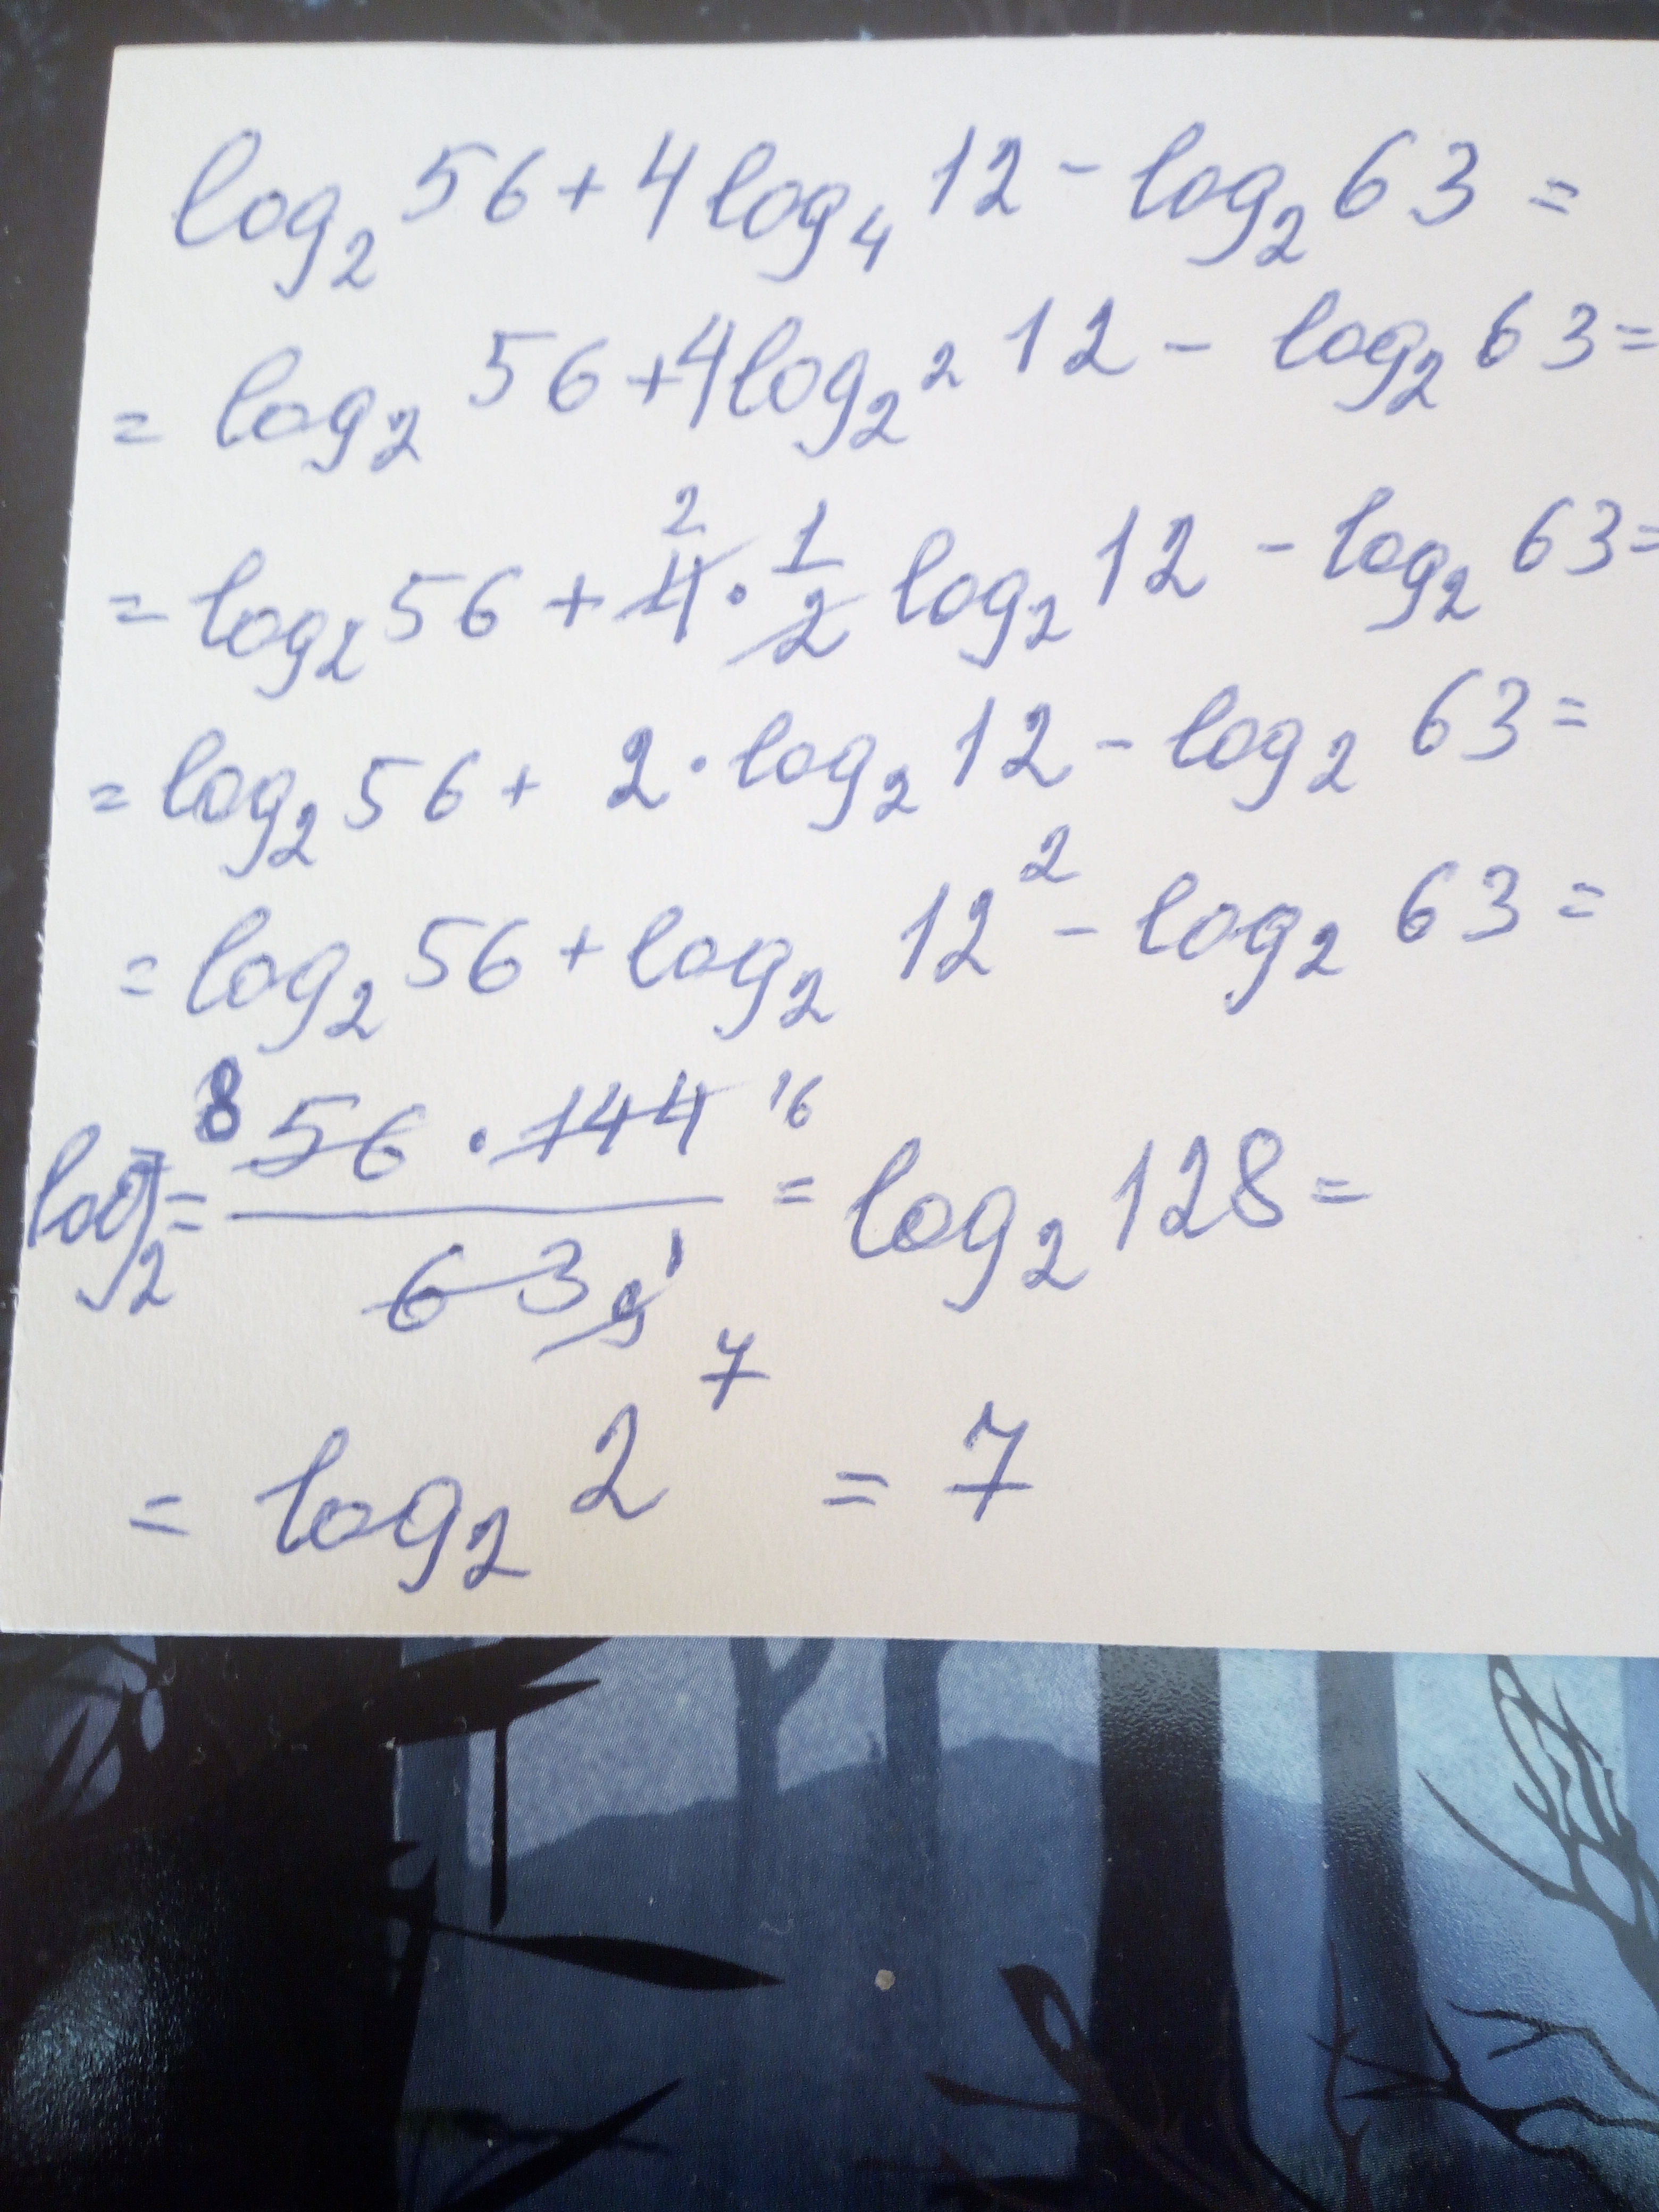 log₂ 56 + 4 log₄ 12 - log₂ 63 =
= log₂ 56 + 4 log₂² 12 - log₂ 63 =
= log₂ 56 + 4 2 · 1/2 log₂ 12 - log₂ 63 =
= log₂ 56 + 2 · log₂ 12 - log₂ 63 =
= log₂ 56 + log₂ 12² - log₂ 63 =
log₂ = 8 56 · 144 16 / 63 9 1 = log₂ 128 =
= log₂ 2⁷ = 7